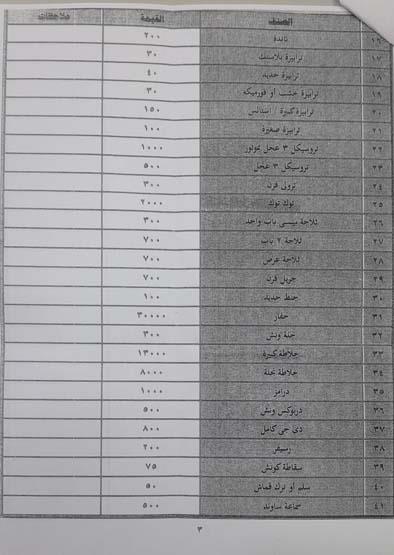 الصنف القيمة ملاحظات
١٦ تاندة ٢٠٠
١٧ ترابيزة بلاستك ٣٠
١٨ ترابيزة حديد ٤٠
١٩ ترابيزة خشب أو فورميكه ٣٠
٢٠ ترابيزة كبيرة / استانلس ١٥٠
٢١ ترابيزة صغيرة ١٠٠
٢٢ تروسيكل ٣ عجل بموتور ١٠٠٠
٢٣ تروسيكل ٣ عجل ٥٠٠
٢٤ ترولى فرن ٣٠٠
٢٥ توك توك ٢٠٠٠
٢٦ ثلاجة بيبسى باب واحد ٣٠٠
٢٧ ثلاجة ٢ باب ٧٠٠
٢٨ ثلاجة عرض ٧٠٠
٢٩ جريل فرن ٧٠٠
٣٠ جنط حديد ١٠٠
٣١ حفار ٣٠٠٠٠
٣٢ حلة ونش ٣٠٠
٣٣ خلاطة كبيرة ١٣٠٠٠
٣٤ خلاطة نحلة ٨٠٠٠
٣٥ درامز ١٠٠٠
٣٦ دربوكس ونش ٥٠٠
٣٧ دى جى كامل ٨٠٠
٣٨ رسيفر ٢٠٠
٣٩ سقاطة كونش ٧٥
٤٠ سلم أو ترك قماش ٥٠
٤١ سماعة ساوند ٥٠٠
٣